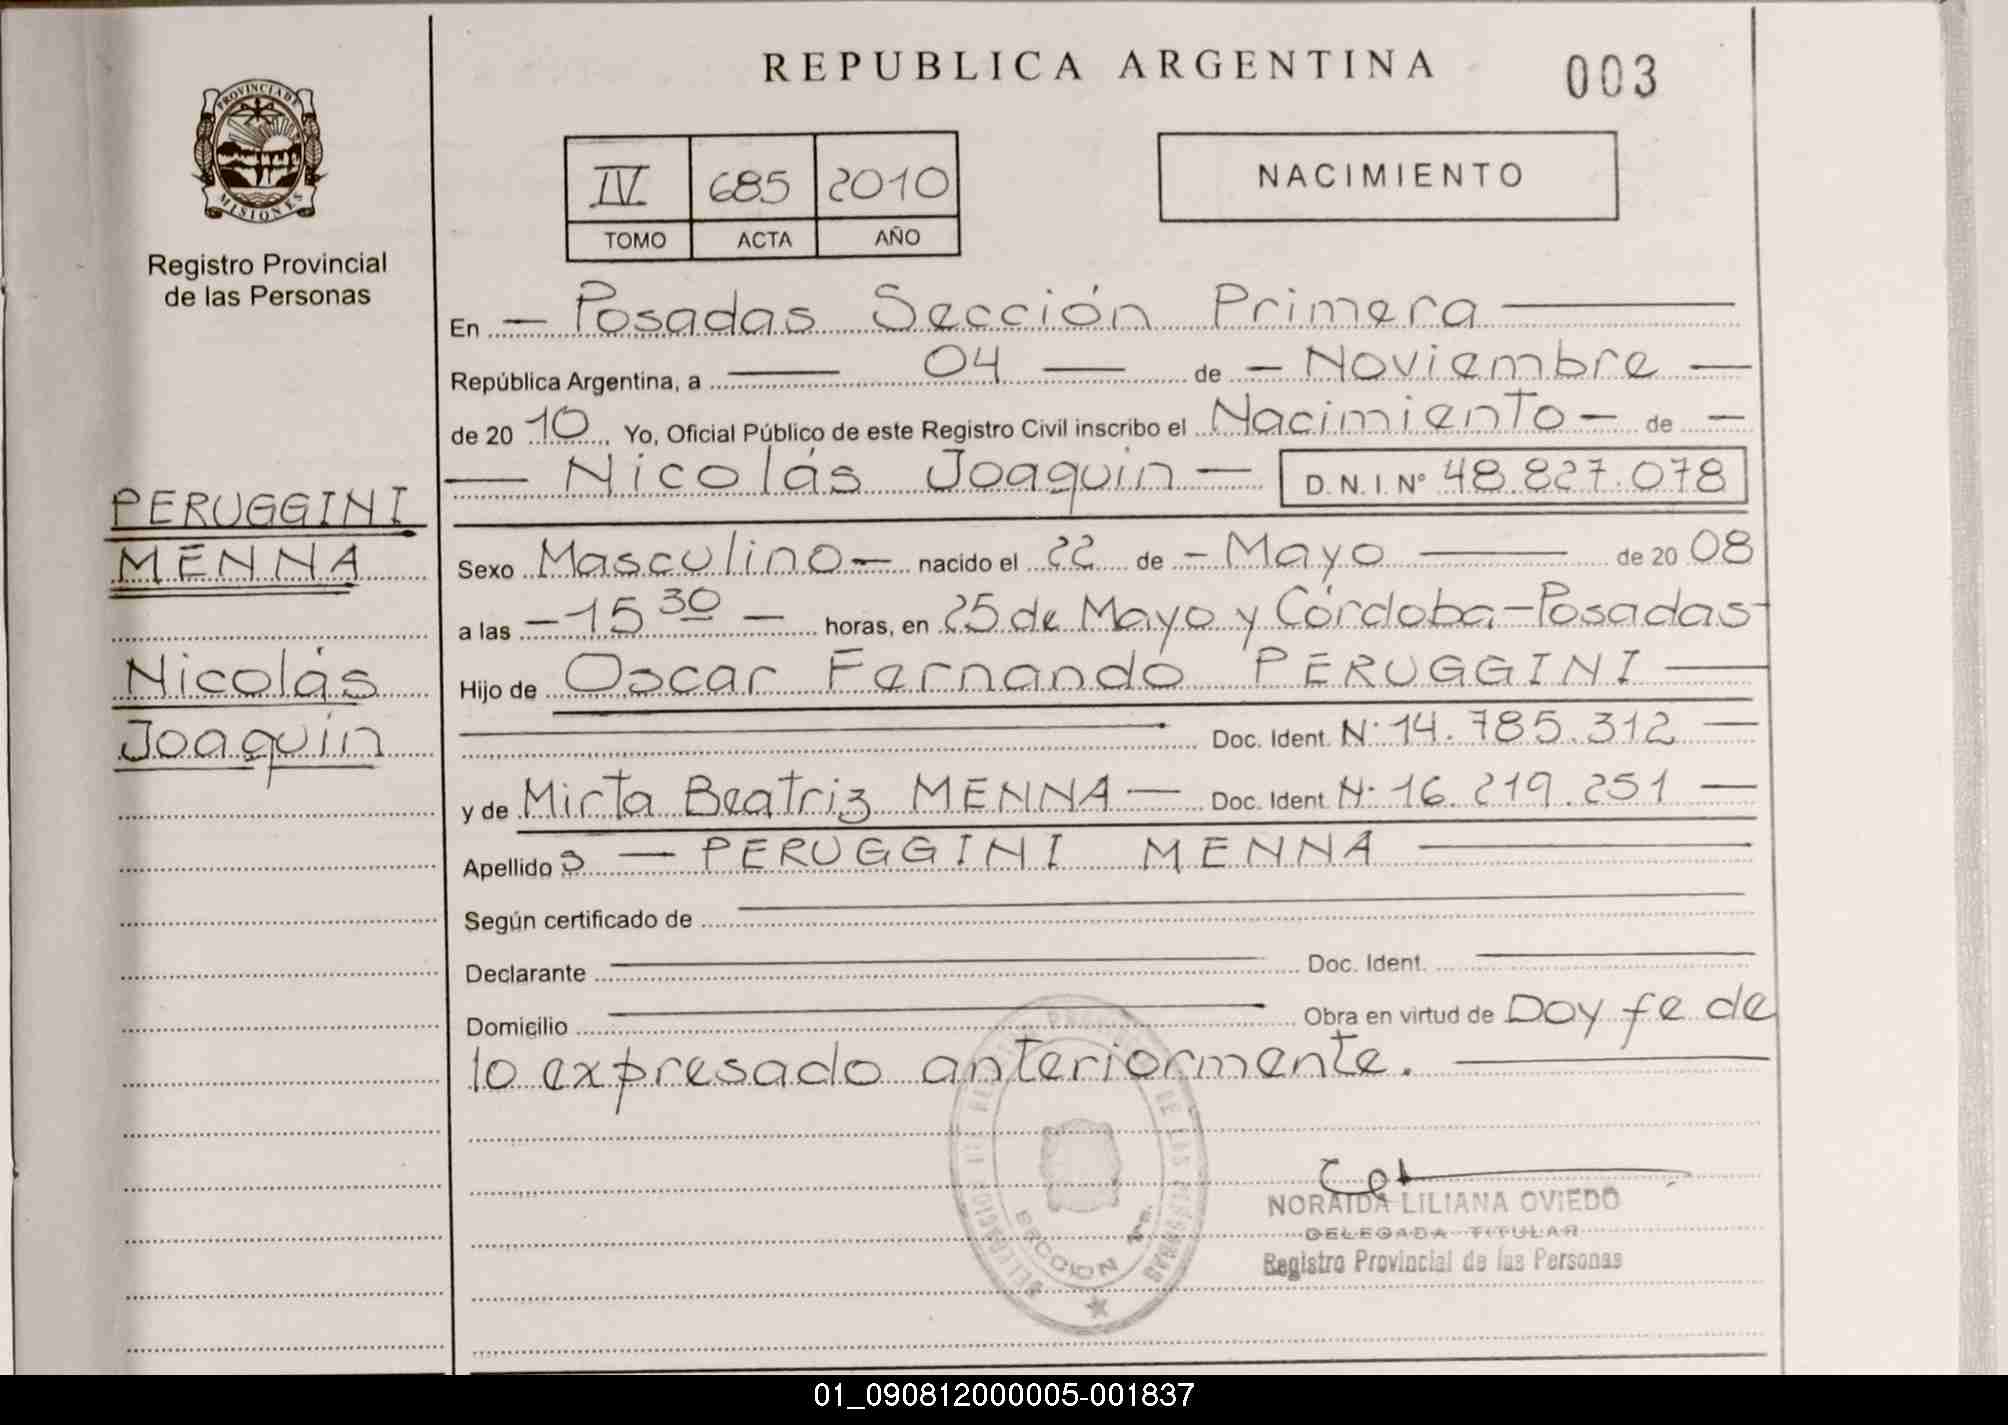 REPUBLICA ARGENTINA
003
PROVINCIA DE
MISIONES
Registro Provincial
de las Personas
IV 685 2010
TOMO ACTA AÑO
NACIMIENTO
En Posadas Sección Primera
República Argentina, a 04 de Noviembre
de 20 10 Yo, Oficial Público de este Registro Civil inscribo el Nacimiento de
Nicolás Joaquín D.N.I. Nº 48.827.078
PERUGGINI
MENNA
Nicolás
Joaquín
Sexo Masculino nacido el 22 de Mayo de 20 08
a las 15 30 horas, en 25 de Mayo y Córdoba-Posadas
Hijo de Oscar Fernando PERUGGINI
Doc. Ident. Nº 14.785.312
y de Mirta Beatriz MENNA Doc. Ident. Nº 16.219.251
Apellido s PERUGGINI MENNA
Según certificado de
Declarante Doc. Ident.
Domicilio Obra en virtud de Doy fe de
lo expresado anteriormente.
SECCION
NORAIDA LILIANA OVIEDO
DELEGADA TITULAR
Registro Provincial de las Personas
01_090812000005-001837